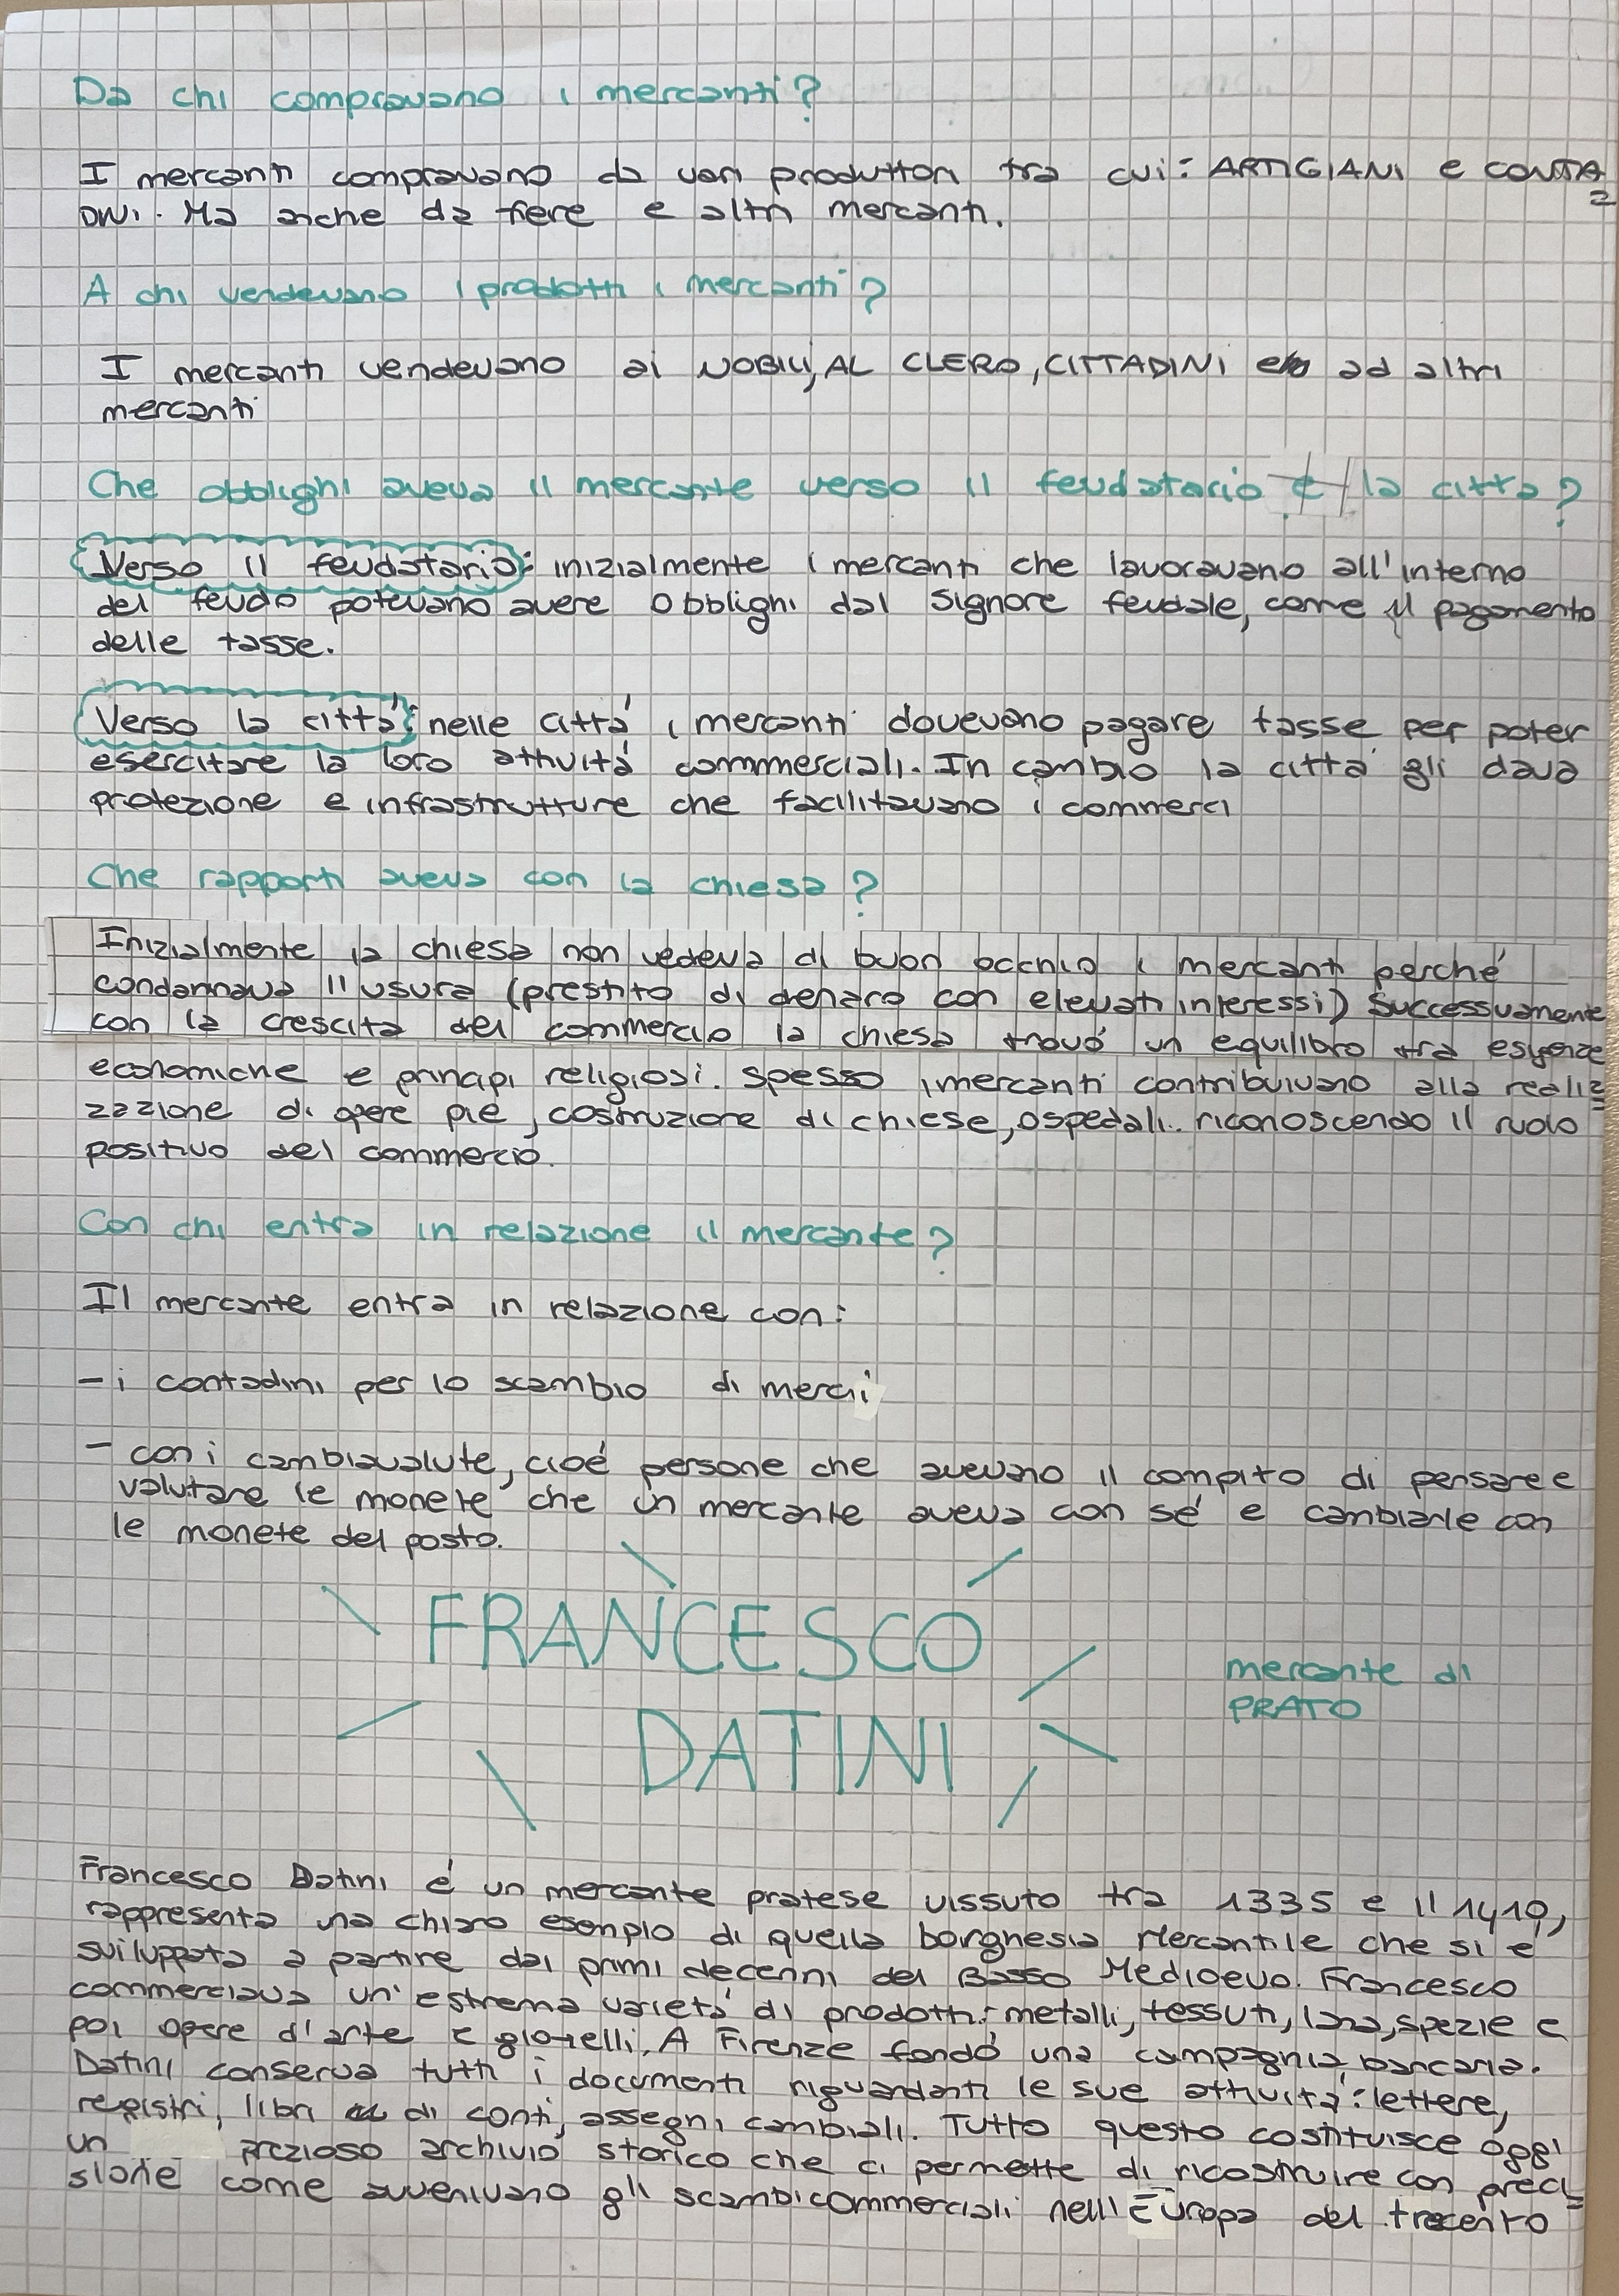 Da chi compravano i mercanti?
I mercanti compravano da vari produttori tra cui: ARTIGIANI e CONTA=
DINI. Ma anche da fiere e altri mercanti.
A chi vendevano i prodotti i mercanti?
I mercanti vendevano ai NOBILI, AL CLERO, CITTADINI e ad altri
mercanti
Che obblighi aveva il mercante verso il feudatario e/la città?
Verso il feudatario: inizialmente i mercanti che lavoravano all'interno
del feudo potevano avere obblighi dal signore feudale, come il pagamento
delle tasse.
Verso la città: nelle città i mercanti dovevano pagare tasse per poter
esercitare la loro attività commerciali. In cambio la città gli dava
protezione e infrastrutture che facilitavano i commerci
Che rapporti aveva con la chiesa?
Inizialmente la chiesa non vedeva di buon occhio i mercanti perché
condannava l'usura (prestito di denaro con elevati interessi) Successivamente
con la crescita del commercio la chiesa trovò un equilibro tra esigenze
economiche e principi religiosi. Spesso i mercanti contribuivano alla realiz=
zazione di opere pie, costruzione di chiese, ospedali.. riconoscendo il ruolo
positivo del commercio.
Con chi entra in relazione il mercante?
Il mercante entra in relazione con:
- i contadini per lo scambio di merci
- con i cambiavalute, cioé persone che avevano il compito di pensare e
valutare le monete che un mercante aveva con sé e cambiarle con
le monete del posto.
FRANCESCO
DATINI
mercante di
PRATO
Francesco Datini é un mercante pratese vissuto tra 1335 e il 1410,
rappresenta una chiaro esempio di quella borghesia Mercantile che si é
sviluppata a partire dai primi decenni del Basso Medioevo. Francesco
commerciava un'estrema varietá di prodotti: metalli, tessuti, lana, spezie e
poi opere d'arte e gioielli. A Firenze fondó una compagnia bancaria.
Datini conserva tutti i documenti riguardanti le sue attività: lettere,
registri, libri di conti, assegni cambiali. Tutto questo costituisce oggi
un prezioso archivio storico che ci permette di ricostruire con preci=
sione come avvenivano gli scambi commerciali nell'Europa del trecento